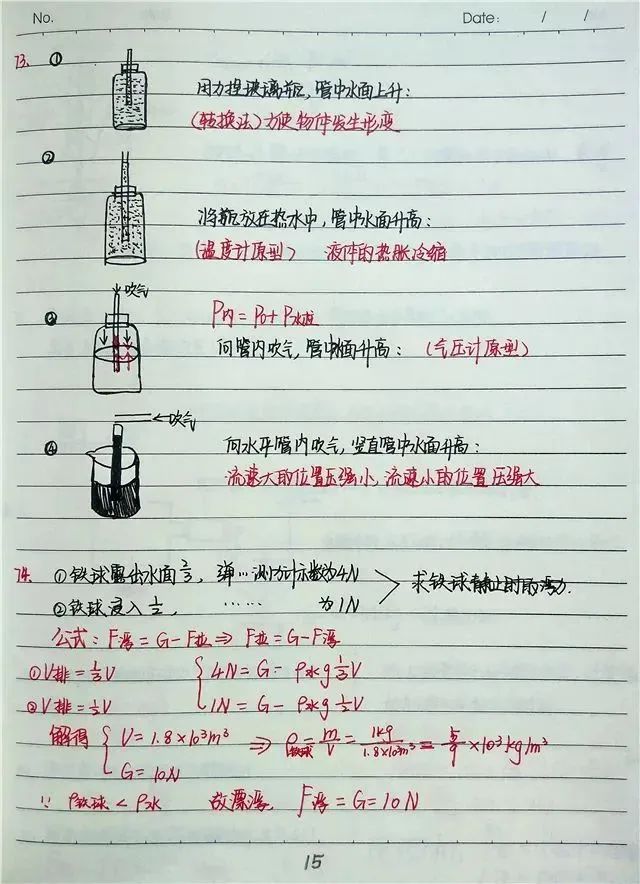 No.
Date: / /
73. ①
用力捏玻璃瓶,管中水面上升:
(转换法)力使物体发生形变
②
将瓶放在热水中,管中水面升高:
(温度计原型) 液体的热胀冷缩
↓←吹气
③ P内=P0+P水柱
向管内吹气,管中水面升高: (气压计原型)
←吹气
④ 向水平管内吹气,竖直管中水面升高:
流速大的位置压强小,流速小的位置压强大
74. ①铁球露出水面2/3,弹…测力计示数为4N
②铁球浸入1/2, …… 为1N
求铁球静止时的浮力.
公式:F浮=G-F拉⇒F拉=G-F浮
①V排=1/3V { 4N=G-ρ水g1/3V
②V排=1/2V 1N=G-ρ水g1/2V
解得 { V=1.8×10³m³ ⇒ ρ铁球=m/V=1kg/1.8×10³m³=5/9×10³kg/m³
G=10N
∵ρ铁球<ρ水 故漂浮, F浮=G=10N
15